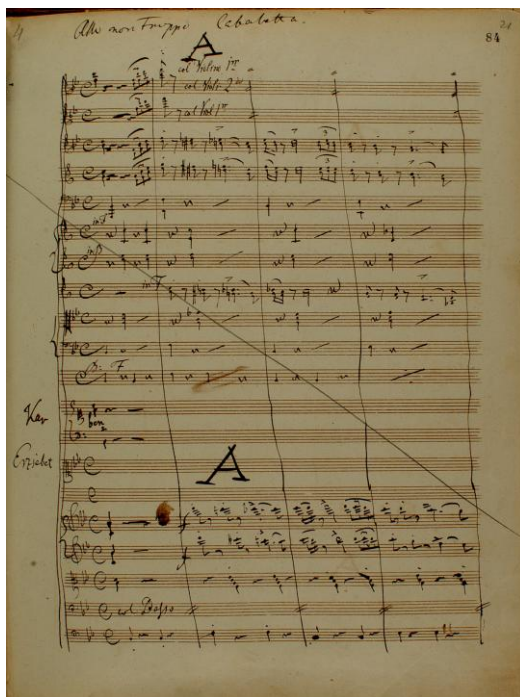 Allo non Troppo Cabaletta.
84
A
col Violino 1mo
col Viol. 2do
col Viol 1mo
in F
B. F
Kar
ban
Erzsébet
A
f
f
col Basso